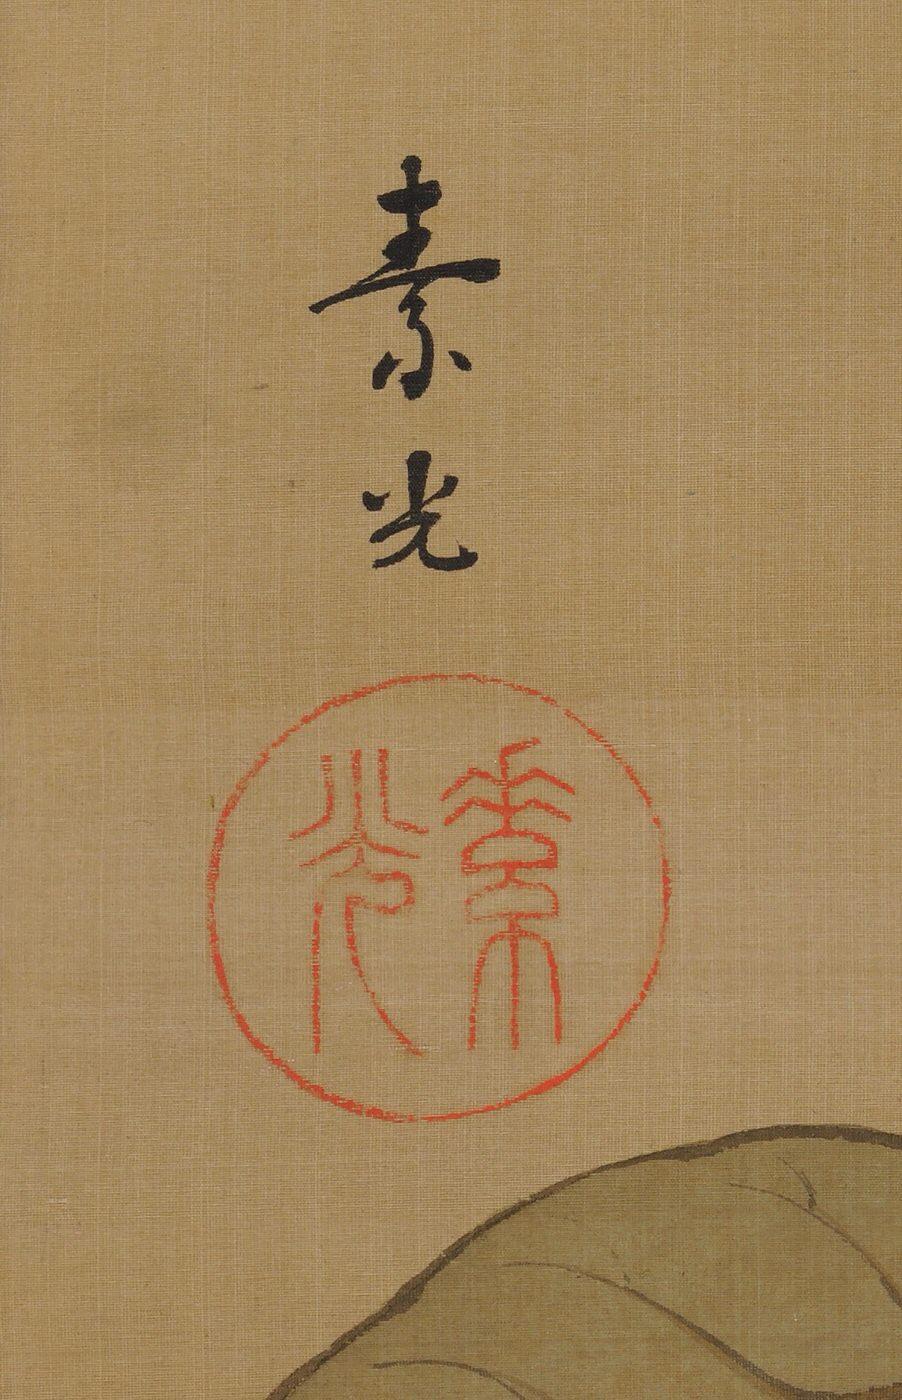 素光
素光